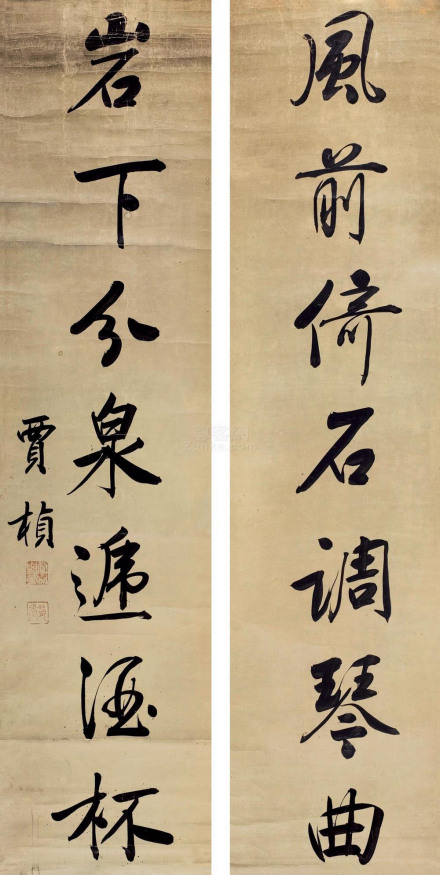 風前倚石調琴曲
岩下分泉遞酒杯
賈楨